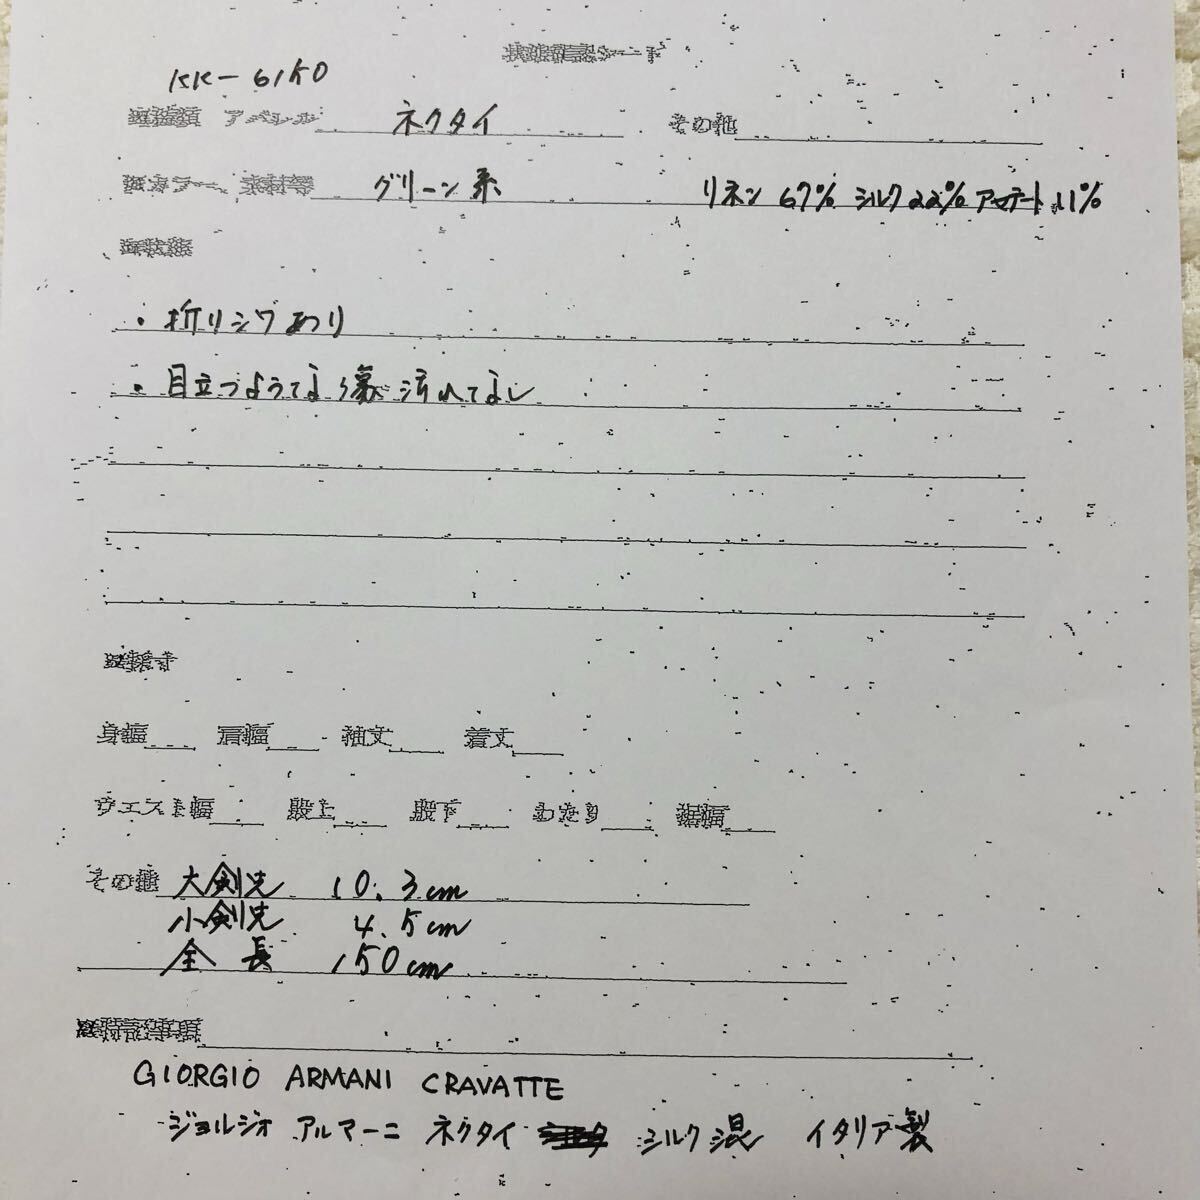 状態確認シート
KK-61K0
アパレル ネクタイ その他
カラー、素材等 グリーン系 リネン 67% シルク22% アセテート 11%
・折りシワあり
・目立つような傷 汚れなし
身幅 肩幅 袖丈 着丈
ウエスト幅 股上 股下 わたり 裾幅
その他 大剣先 10.3cm
小剣先 4.5cm
全長 150cm
特記事項
GIORGIO ARMANI CRAVATTE
ジョルジオ アルマーニ ネクタイ シルク混 イタリア製